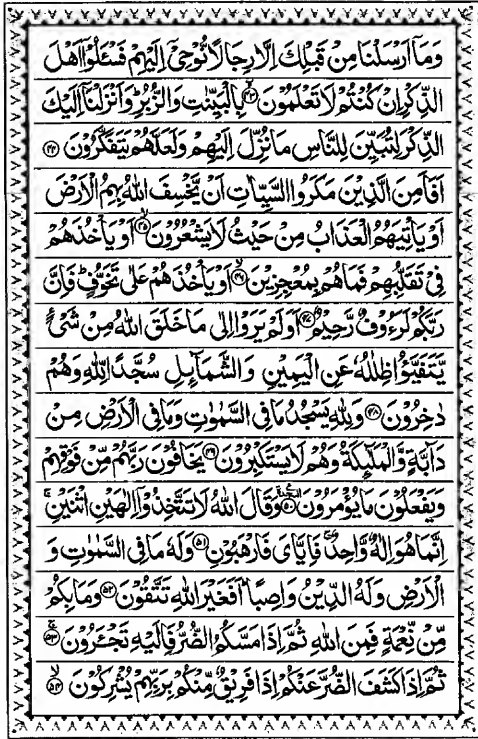 وَمَآ اَرۡسَلۡنَا مِنۡ قَبۡلِكَ اِلَّا رِجَالًا نُّوۡحِىۡۤ اِلَيۡهِمۡ فَسۡـَٔلُوۡۤا اَهۡلَ
الذِّكۡرِ اِنۡ كُنۡتُمۡ لَا تَعۡلَمُوۡنَۙ‏ ﴿۴۳﴾ بِالۡبَيِّنٰتِ وَالزُّبُرِؕ وَاَنۡزَلۡنَاۤ اِلَيۡكَ
الذِّكۡرَ لِتُبَيِّنَ لِلنَّاسِ مَا نُزِّلَ اِلَيۡهِمۡ وَلَعَلَّهُمۡ يَتَفَكَّرُوۡنَ‏ ﴿۴۴﴾
اَفَاَمِنَ الَّذِيۡنَ مَكَرُوا السَّيِّاٰتِ اَنۡ يَّخۡسِفَ اللّٰهُ بِهِمُ الۡاَرۡضَ
اَوۡ يَاۡتِيَهُمُ الۡعَذَابُ مِنۡ حَيۡثُ لَا يَشۡعُرُوۡنَۙ‏ ﴿۴۵﴾ اَوۡ يَاۡخُذَهُمۡ
فِىۡ تَقَلُّبِهِمۡ فَمَا هُمۡ بِمُعۡجِزِيۡنَۙ‏ ﴿۴۶﴾ اَوۡ يَاۡخُذَهُمۡ عَلٰى تَخَوُّفٍؕ فَاِنَّ
رَبَّكُمۡ لَرَءُوۡفٌ رَّحِيۡمٌ‏ ﴿۴۷﴾ اَوَلَمۡ يَرَوۡا اِلٰى مَا خَلَقَ اللّٰهُ مِنۡ شَىۡءٍ
يَّتَفَيَّؤُا ظِلٰلُهٗ عَنِ الۡيَمِيۡنِ وَالشَّمَآٮِٕلِ سُجَّدًا لِّلّٰهِ وَهُمۡ
دٰخِرُوۡنَ‏ ﴿۴۸﴾ وَلِلّٰهِ يَسۡجُدُ مَا فِى السَّمٰوٰتِ وَمَا فِى الۡاَرۡضِ مِنۡ
دَآبَّةٍ وَّالۡمَلٰۤٮِٕكَةُ وَهُمۡ لَا يَسۡتَكۡبِرُوۡنَ‏ ﴿۴۹﴾ يَخَافُوۡنَ رَبَّهُمۡ مِّنۡ فَوۡقِهِمۡ
وَيَفۡعَلُوۡنَ مَا يُؤۡمَرُوۡنَ‏ ﴿۵۰﴾ وَقَالَ اللّٰهُ لَا تَتَّخِذُوۡۤا اِلٰهَيۡنِ اثۡنَيۡنِۚ
اِنَّمَا هُوَ اِلٰـهٌ وَّاحِدٌۚ فَاِيَّاىَ فَارۡهَبُوۡنِ‏ ﴿۵۱﴾ وَلَهٗ مَا فِى السَّمٰوٰتِ وَ
الۡاَرۡضِ وَلَهُ الدِّيۡنُ وَاصِبًاؕ اَفَغَيۡرَ اللّٰهِ تَتَّقُوۡنَ‏ ﴿۵۲﴾ وَمَا بِكُمۡ
مِّنۡ نِّعۡمَةٍ فَمِنَ اللّٰهِ ثُمَّ اِذَا مَسَّكُمُ الضُّرُّ فَاِلَيۡهِ تَجۡـَٔرُوۡنَۚ‏ ﴿۵۳﴾
ثُمَّ اِذَا كَشَفَ الضُّرَّ عَنۡكُمۡ اِذَا فَرِيۡقٌ مِّنۡكُمۡ بِرَبِّهِمۡ يُشۡرِكُوۡنَۙ‏ ﴿۵۴﴾